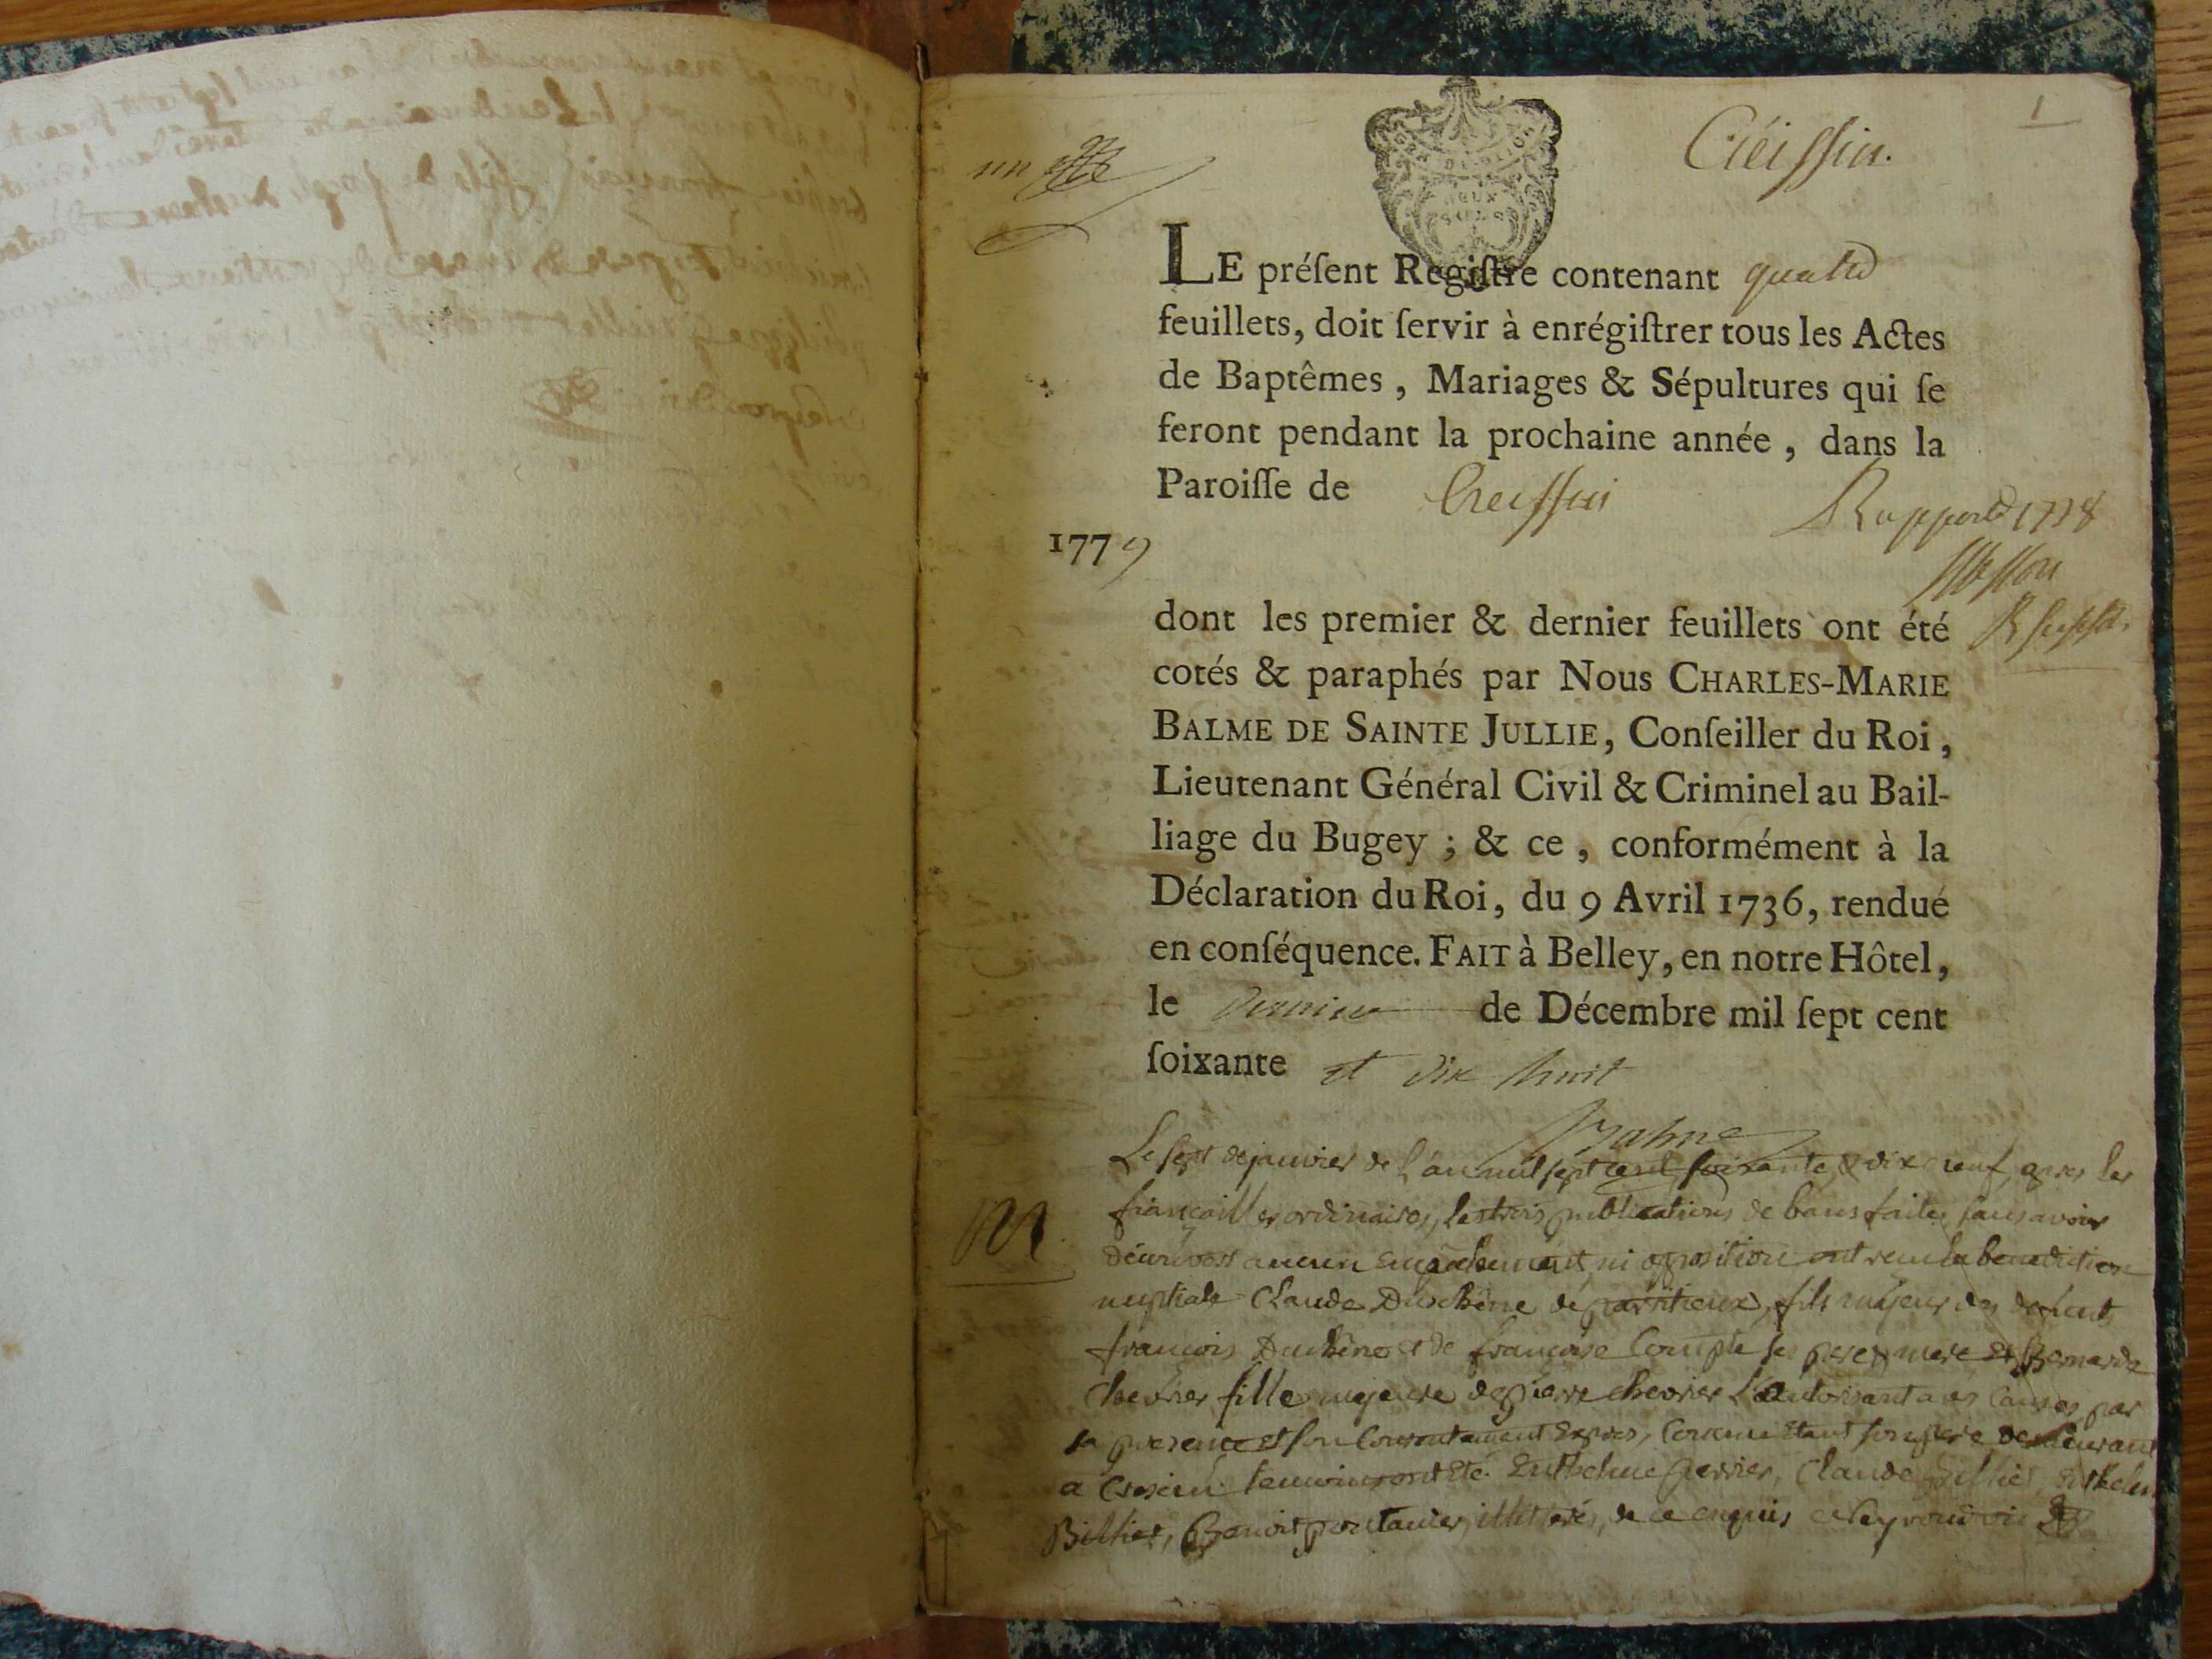 1
un
Creissin.
DEUX
SOLS
LE préſent Regiſtre contenant quatre
feuillets, doit ſervir à enrégiſtrer tous les Actes
de Baptêmes, Mariages & Sépultures qui ſe
feront pendant la prochaine année, dans la
Paroiſſe de Creissin
Rapporté 1778
1779
dont les premier & dernier feuillets ont été
cotés & paraphés par Nous CHARLES-MARIE
BALME DE SAINTE JULLIE, Conſeiller du Roi,
Lieutenant Général Civil & Criminel au Bail-
liage du Bugey ; & ce, conformément à la
Déclaration du Roi, du 9 Avril 1736, rendué
en conſéquence. FAIT à Belley, en notre Hôtel,
le dernier de Décembre mil ſept cent
ſoixante et dix huit
Balme
Le sept de janvier de l'an mil sept cent soixante & dix neuf, apres les
M
fiançailles ordinaires, les trois publications de bans faites sans avoir
découvert aucun empechement ni opposition ont recu la benediction
nuptiale Claude Duchêne de parritieux, fils majeur des defunts
francois Duchêne et de francoise Compte ses pere & mere et Bernarde
Chevrier fille majeure de pierre chevrier L'autorisant a ces causes par
sa presence et son consentement expres, comme etant son pere demeurant
a Cresein temoins ont été Enthelme perrier, Claude Billiet, Enthelme
Billiet, Benoit pontanier, illiterés, de ce enquis